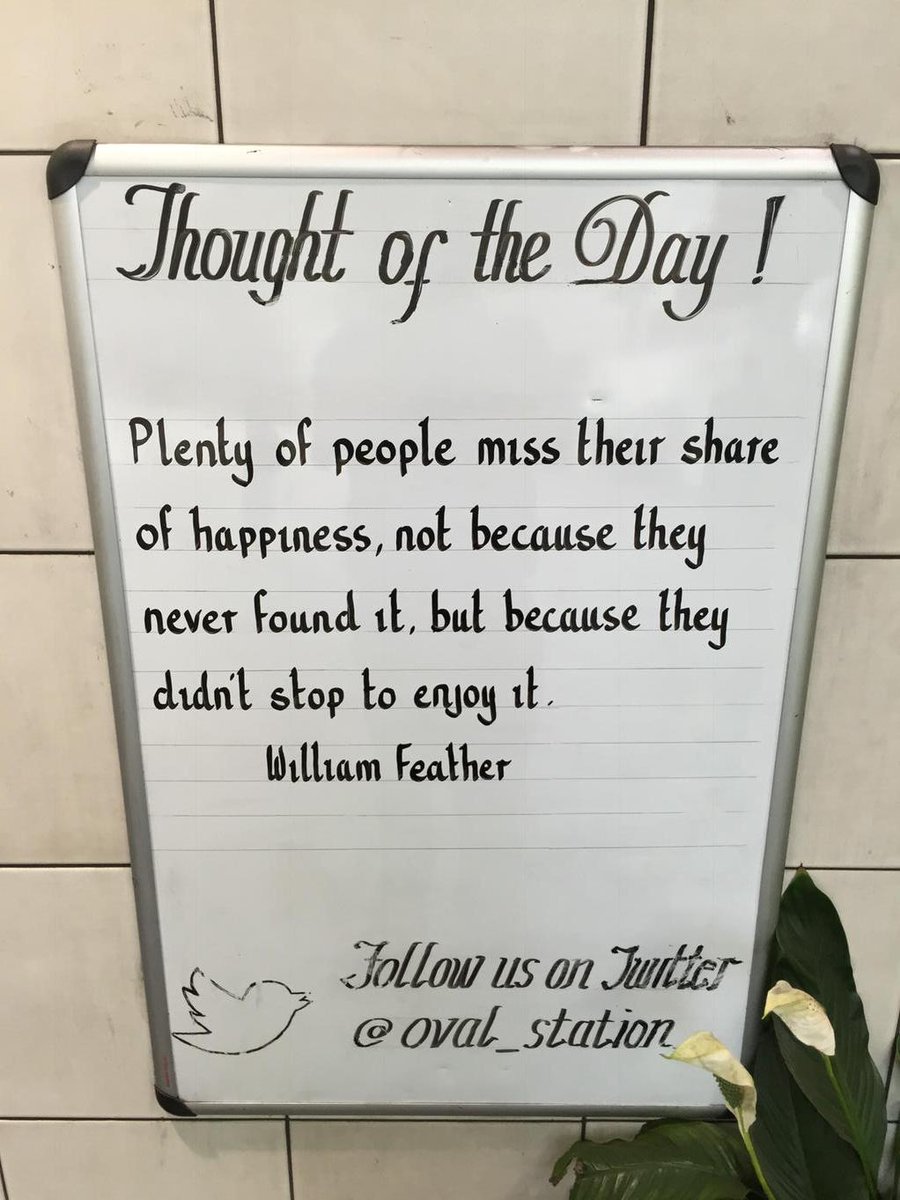 Thought of the Day !
Plenty of people miss their share
of happiness, not because they
never found it, but because they
didn't stop to enjoy it.
William Feather
Follow us on Twitter
@oval_station